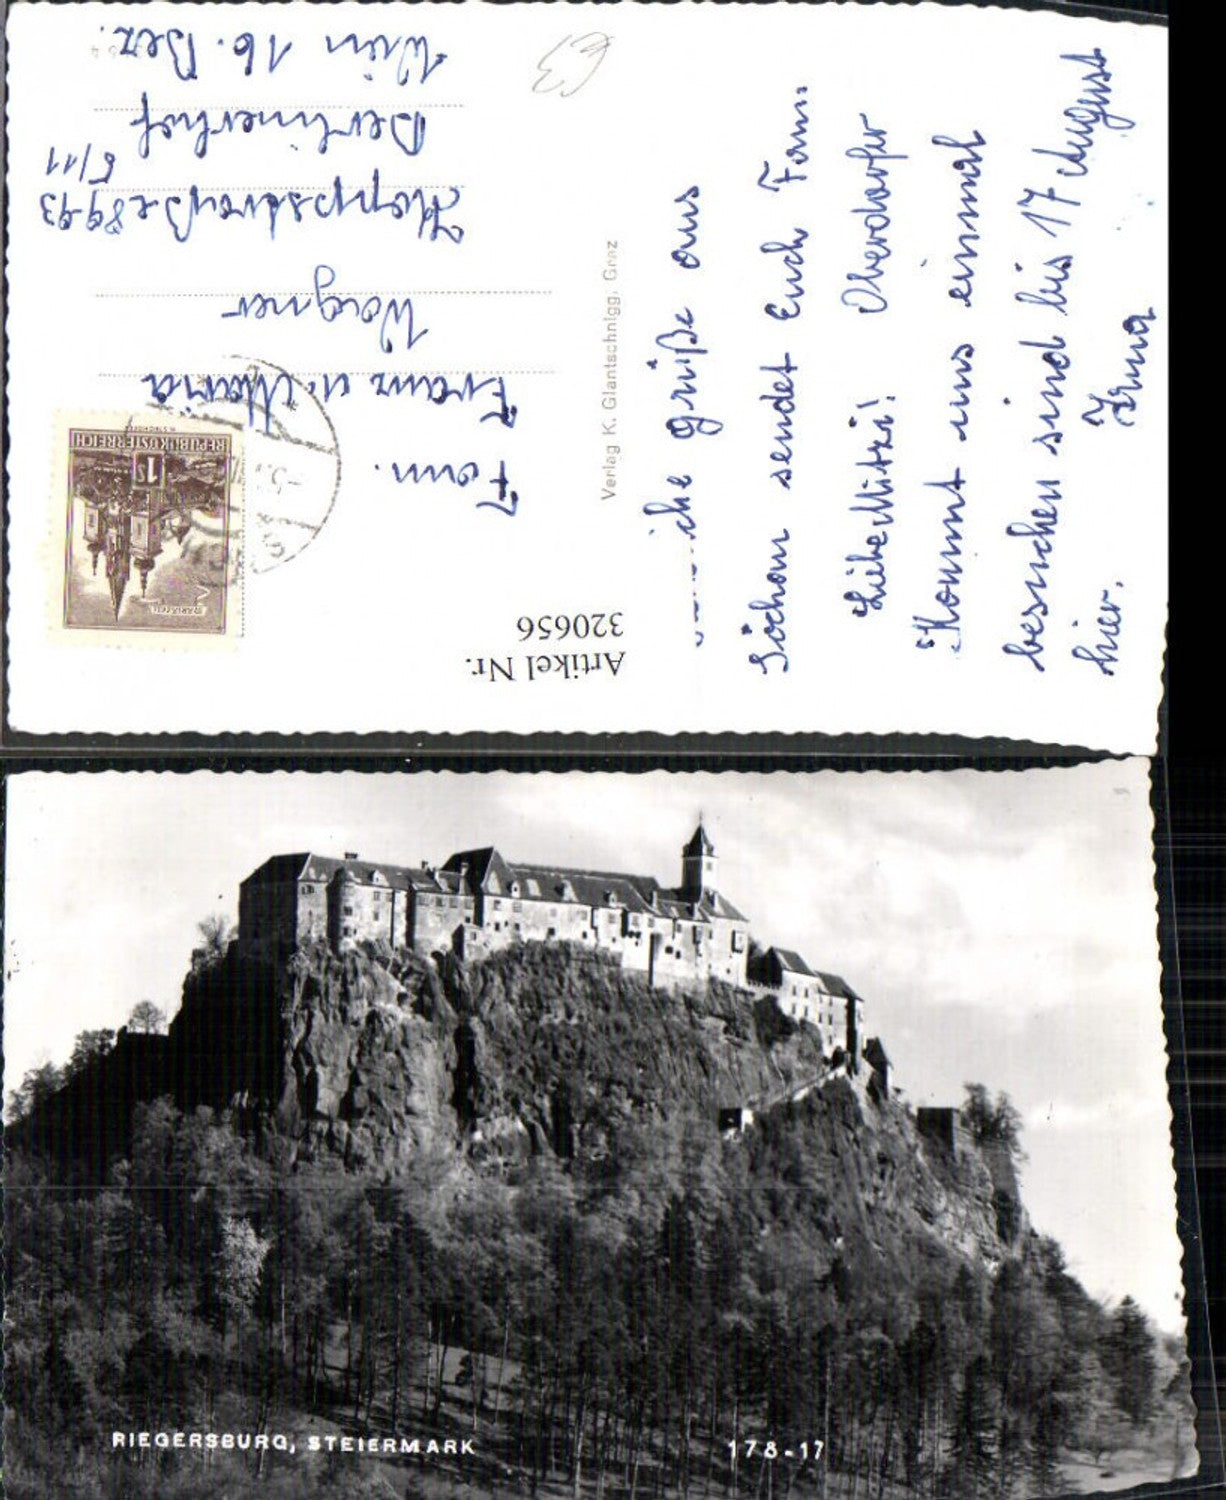 Fam.
Franz u. Maria
Wagner
Koppstraße 89-93
5/11
Berlinerhof
Wien 16. Bez.
REPUBLIK ÖSTERREICH
1S
MARIAZELL
Artikel Nr.
320656
Verlag K. Glantschnigg, Graz
Grüße aus
Söchau sendet Euch Fam.
Oberdorfer
Liebe Mitzi!
Kommt uns einmal
besuchen sind bis 17 August
hier.
Irma
RIEGERSBURG, STEIERMARK
178-17